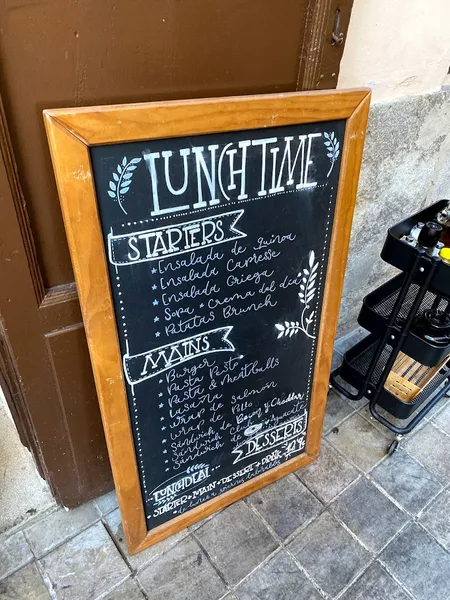 LUNCHTIME
STARTERS
* Ensalada de Quinoa
* Ensalada Capresse
* Ensalada Griega
* Sopa * Crema del día
* Patatas Brunch
MAINS
* Burger
* Pasta Pesto
* Pasta & Meatballs
* Lasaña
* Wrap de Salmón
* Wrap de Pollo
* Sándwich de Bacon y Cheddar
* Sándwich Club
* Sándwich de Aguacate
DESSERTS
LUNCH DEAL
* STARTER + MAIN + DESSERT + DRINK
de lunes a